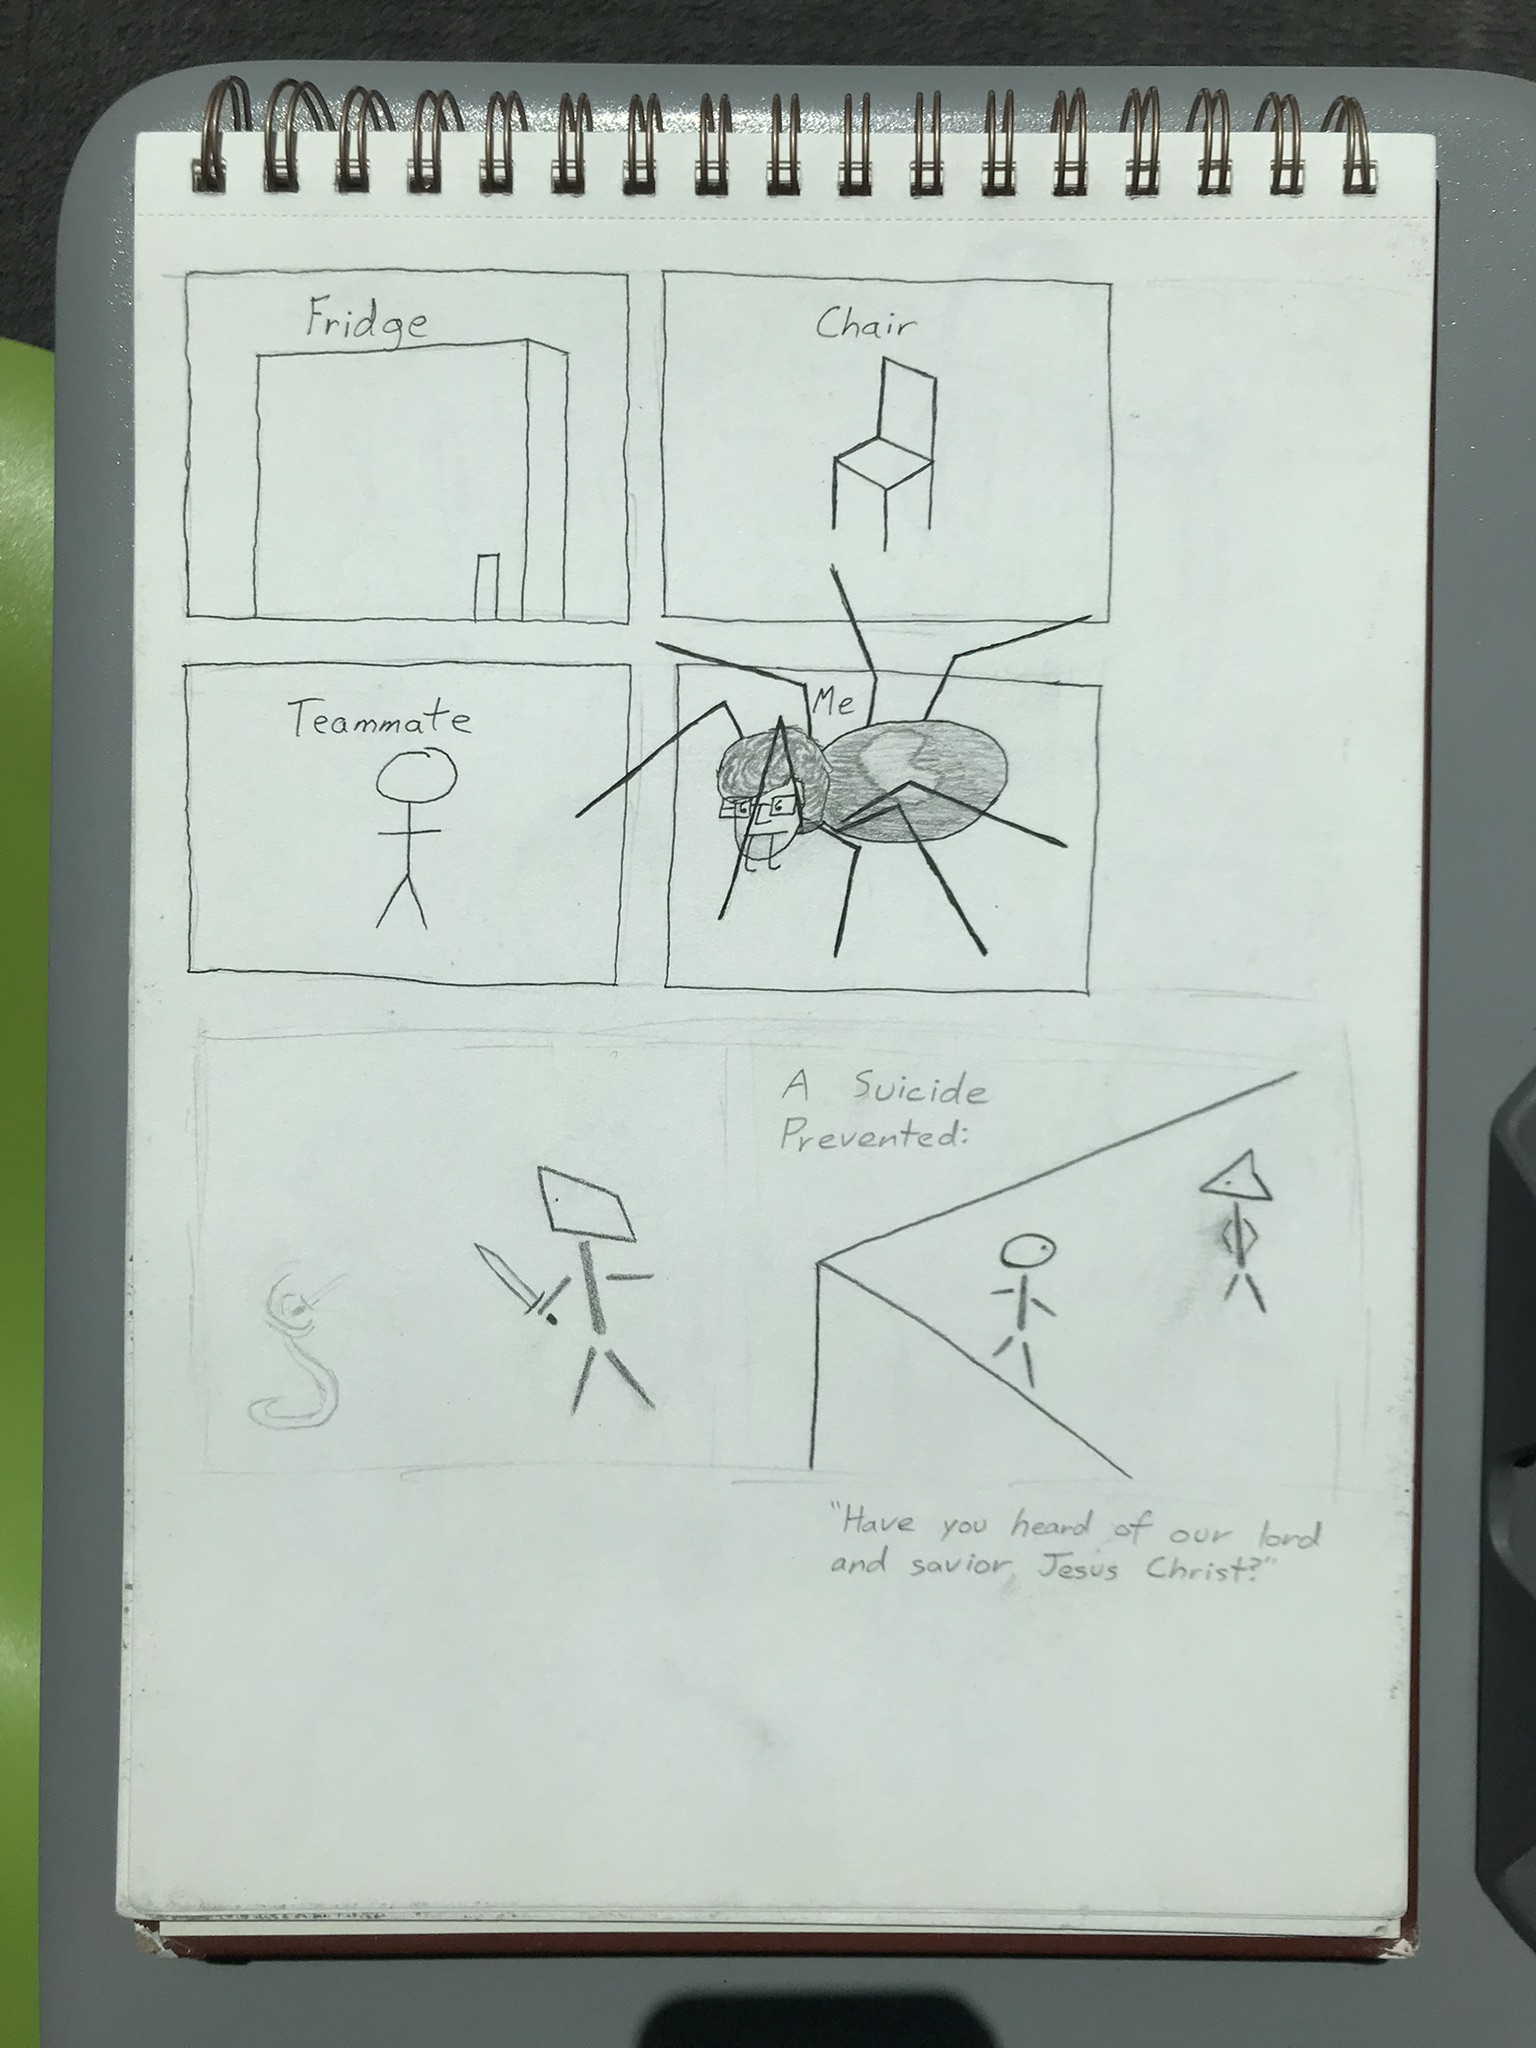 Fridge
Chair
Teammate
Me
A Suicide
Prevented:
"Have you heard of our lord
and savior, Jesus Christ?"